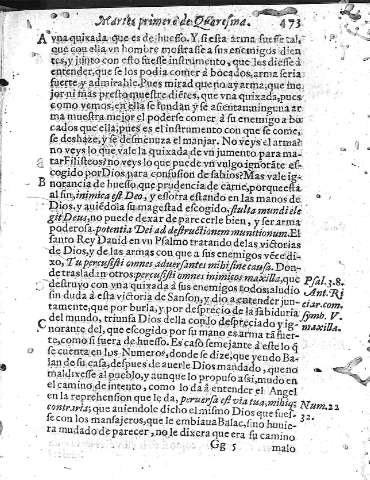 Martes primero de Quaresma. 473
A vna quixada que es de huesso. Y si esta arma fuesse tal,
que con ella vn hombre mostrasse a sus enemigos dien
tes, y junto con esto fuesse instrumento, que les diesse à
entender, que se los podia comer à bocados, arma seria
fuerte y admirable. Pues mirad que no ay arma, que me
jor ni mas presto muestre diētes, que vna quixada, pues
como vemos, en ella se fundan y se assientan ninguna ar
ma muestra mejor el poderse comer à su enemigo a bo
cados que ella; pues es el instrumento con que se come,
se deshaze, y se desmenuza el manjar. No veys el arma?
no veys lo que vale la quixada de vn jumento para ma-
tar Filisteos? no veys lo que puede vn vulgo ignorāte es-
cogido por Dios para confusion de sabios? Mas vale ig-
B norancia de huesso, que prudencia de carne, porque esta
al fin, inimica est Deo, y essotra estando en las manos de
Dios, y auiēdola su magestad escogido, stulta mundi ele
git Deus, no puede dexar de parecerle bien, y ser arma
poderosa. potentia Dei ad destructionem munitionum. El
santo Rey Dauid en vn Psalmo tratando de las victorias
de Dios, y de las armas con que a sus enemigos vēce di-
xo, Tu percussisti omnes aduersantes mihi sine causa. Don-
de trasladan otros, percussisti omnes inimicos maxilla, que
destruyo con vna quixada à sus enemigos todos; aludio
sin duda à esta victoria de Sanson, y dio a entender jun-
tamente, que por burla, y por desprecio de la sabiduria
del mundo, triunfa Dios della con lo despreciado y ig-
C norante del, que escogido por su mano es arma tā fuer-
te, como si fuera de huesso. Es caso semejante à este lo q̄
se cuenta en los Numeros, donde se dize, que yendo Ba-
lan de su casa, despues de auerle Dios mandado, que no
maldixesse al pueblo, y aunque lo propuso assi, mudo en
el camino de intento, como lo dà à entender el Angel
en la reprehension que le da, peruersa est via tua, mihiq;
contraria; que auiendole dicho el mismo Dios que fues-
se con los mensajeros, que le embiaua Balac, sino huuie-
ra mudado de parecer, no le dixera que era su camino
Gg 5 malo
Psal. 3. 8.
Ant. Ri
ciar. com.
symb. V.
maxilla.
Num. 22
32.